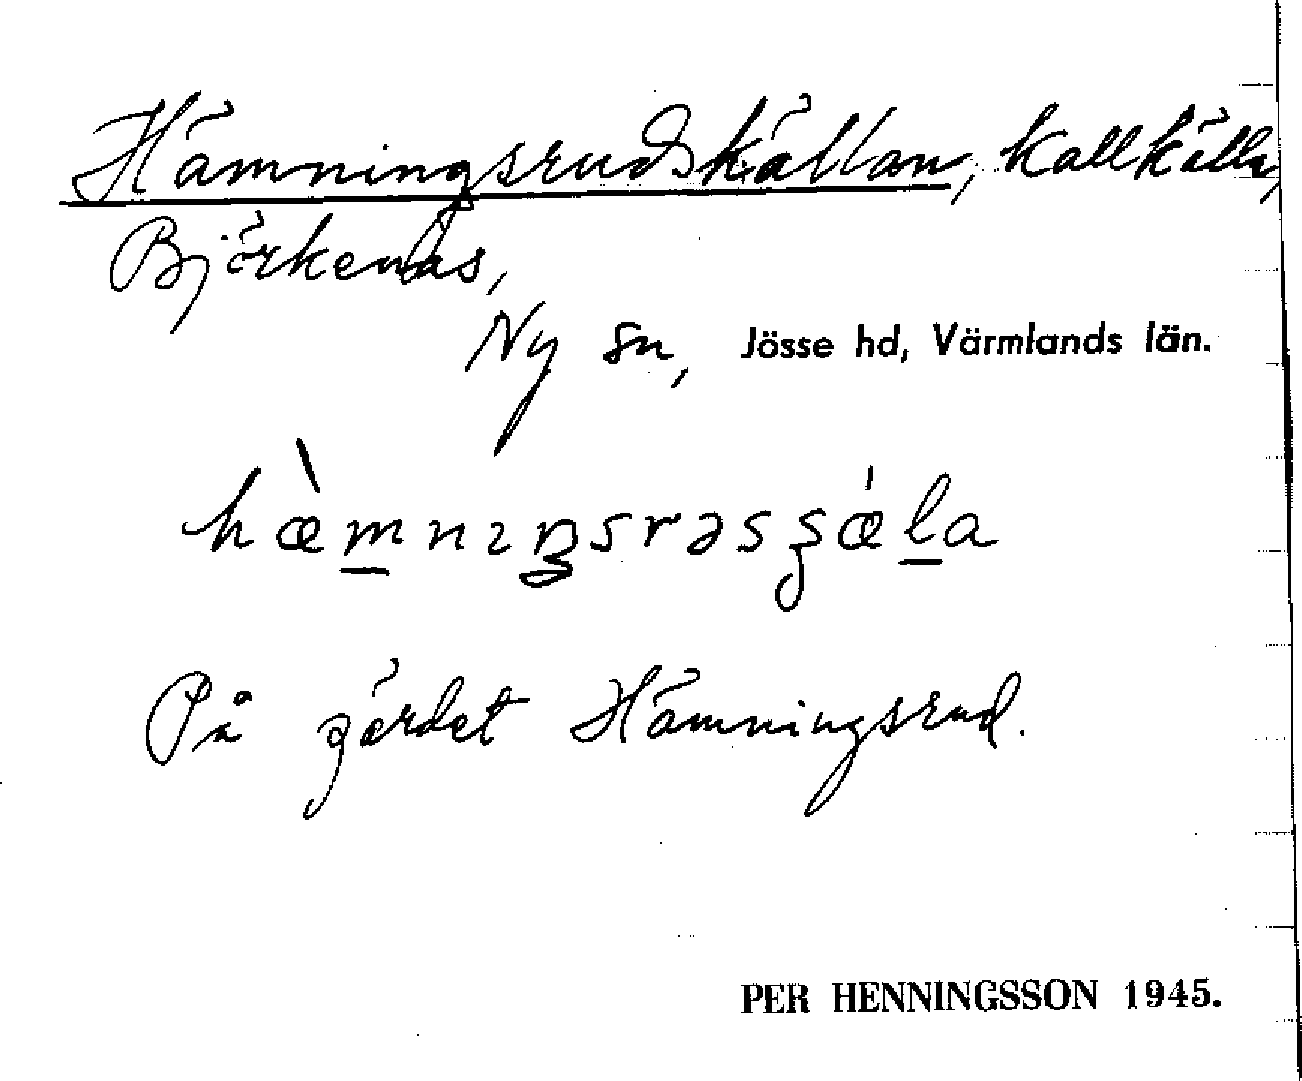 Hämningsrudskällan, kallkälla,
Björkenäs,
Ny sn, Jösse hd, Värmlands län.
hæ̀m̲nıŋsrəsʂǽl̲a
På gärdet Hämningsrud.
PER HENNINGSSON 1945.